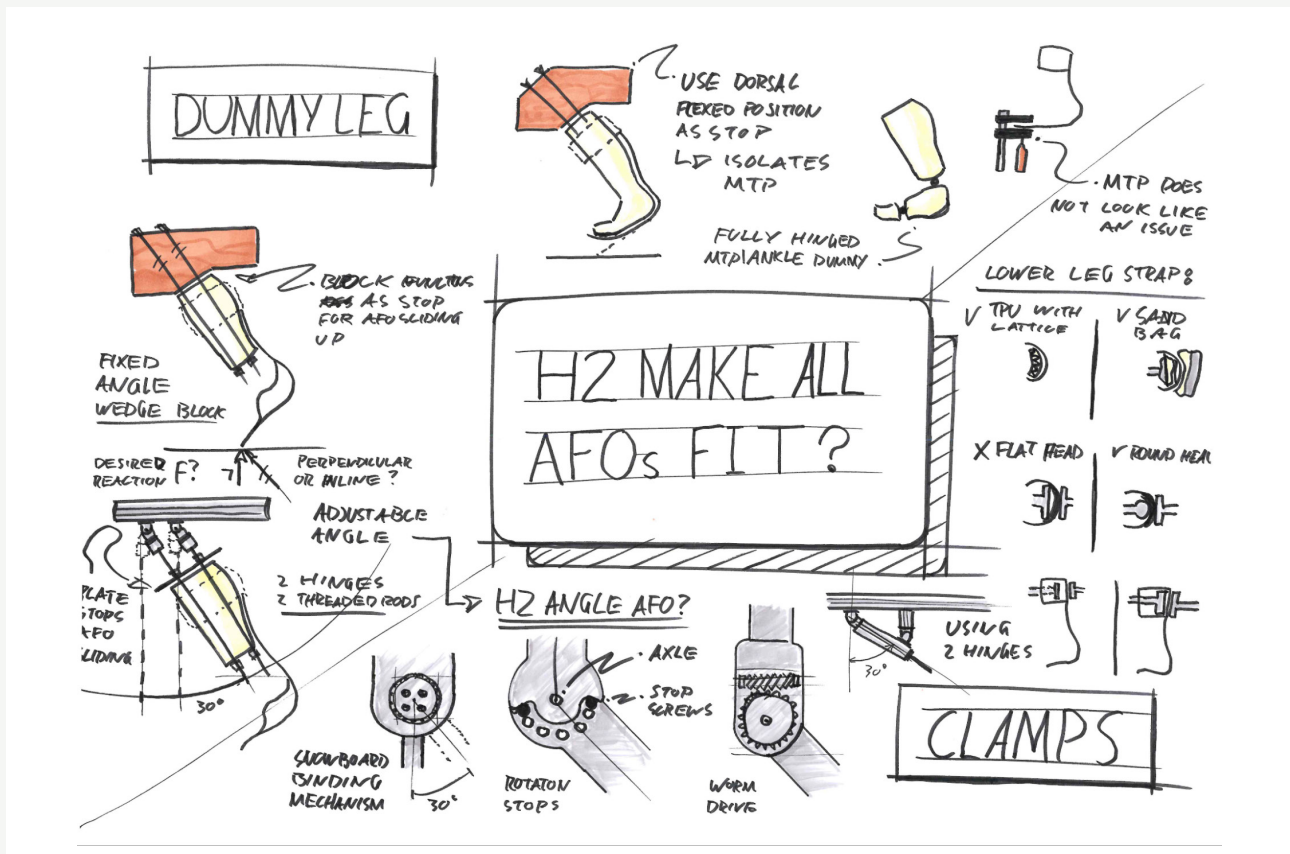 DUMMY LEG
USE DORSAL
FLEXED POSITION
AS STOP
ISOLATES
MTP
MTP DOES
NOT LOOK LIKE
AN ISSUE
FULLY HINGED
MTP/ANKLE DUMMY.
BLOCK
AS STOP
FOR AFO SLIDING
UP
FIXED
ANGLE
WEDGE BLOCK
DESIRED
REACTION F?
PERPENDICULAR
OR INLINE?
ADJUSTABLE
ANGLE
2 HINGES
2 THREADED RODS
PLATE
STOPS
AFO
SLIDING
30°
H2 MAKE ALL
AFOs FIT?
LOWER LEG STRAP:
V TPU WITH
LATTICE
V SAND
BAG
X FLAT HEAD
V ROUND HEAD
H2 ANGLE AFO?
AXLE
STOP
SCREWS
SNOWBOARD
BINDING
MECHANISM
30°
ROTATON
STOPS
WORM
DRIVE
30°
USING
2 HINGES
CLAMPS